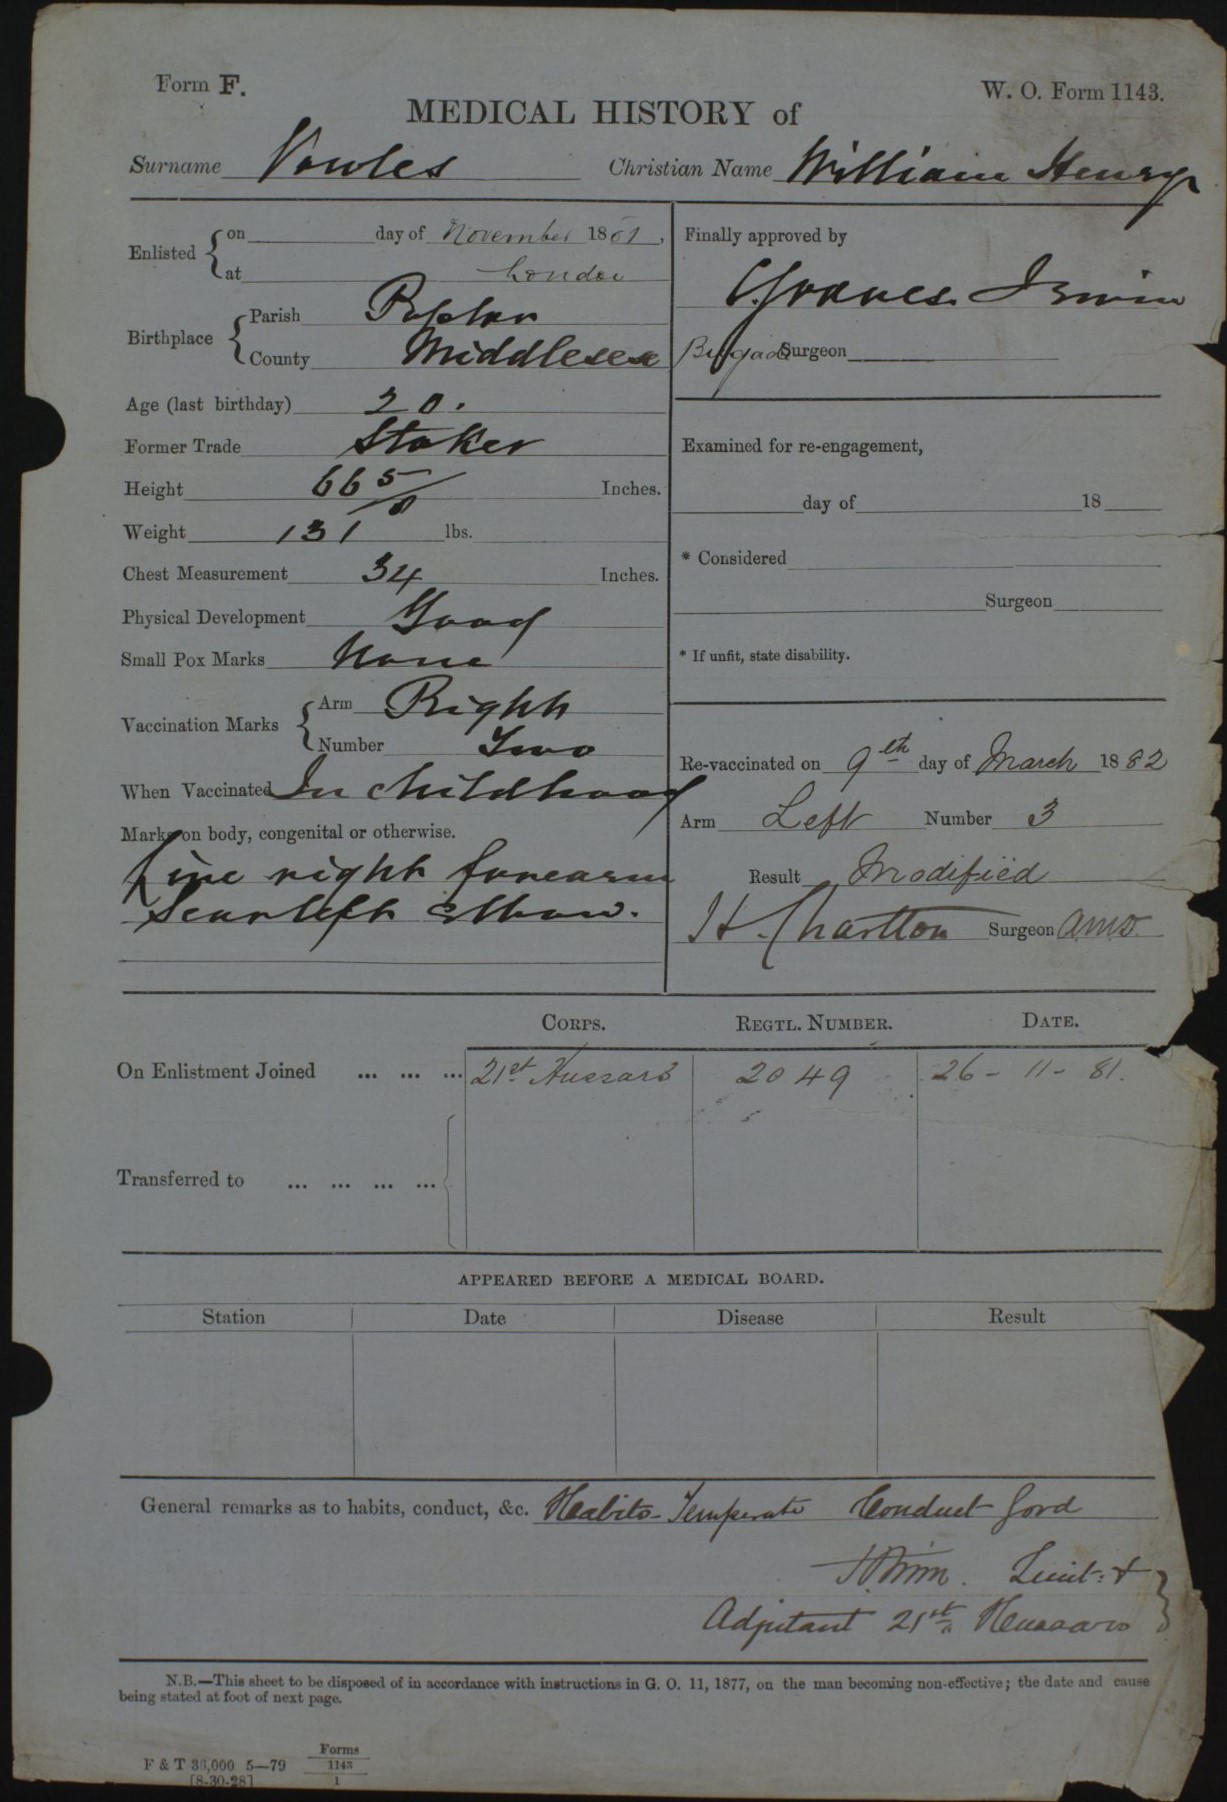 Form F.
W. O. Form 1143.
MEDICAL HISTORY of
Surname Vowles Christian Name William Henry
Enlisted { on day of November 1881,
at London
Birthplace { Parish Poplar
County Middlesex
Age (last birthday) 20.
Former Trade Stoker
Height 66 5/8 Inches.
Weight 131 lbs.
Chest Measurement 34 Inches.
Physical Development Good
Small Pox Marks None
Vaccination Marks { Arm Right
Number Two
When Vaccinated In childhood
Marks on body, congenital or otherwise.
right forearm
Scar left Elbow.
Finally approved by
Graves Irwin
Brigade Surgeon
Examined for re-engagement,
day of 18
* Considered
Surgeon
* If unfit, state disability.
Re-vaccinated on 9th day of March 1882
Arm Left Number 3
Result Modified
H. Charlton Surgeon AMD
CORPS. REGTL. NUMBER. DATE.
On Enlistment Joined ... ... ... 21st Hussars 2049 26 - 11 - 81.
Transferred to ... ... ... ...
APPEARED BEFORE A MEDICAL BOARD.
Station Date Disease Result
General remarks as to habits, conduct, &c. Habits - Temperate Conduct Good
Lieut: &
Adjutant 21st Hussars
N.B.—This sheet to be disposed of in accordance with instructions in G. O. 11, 1877, on the man becoming non-effective; the date and cause
being stated at foot of next page.
F & T 36,000 5—79 Forms
1143
1
[8-30-28]